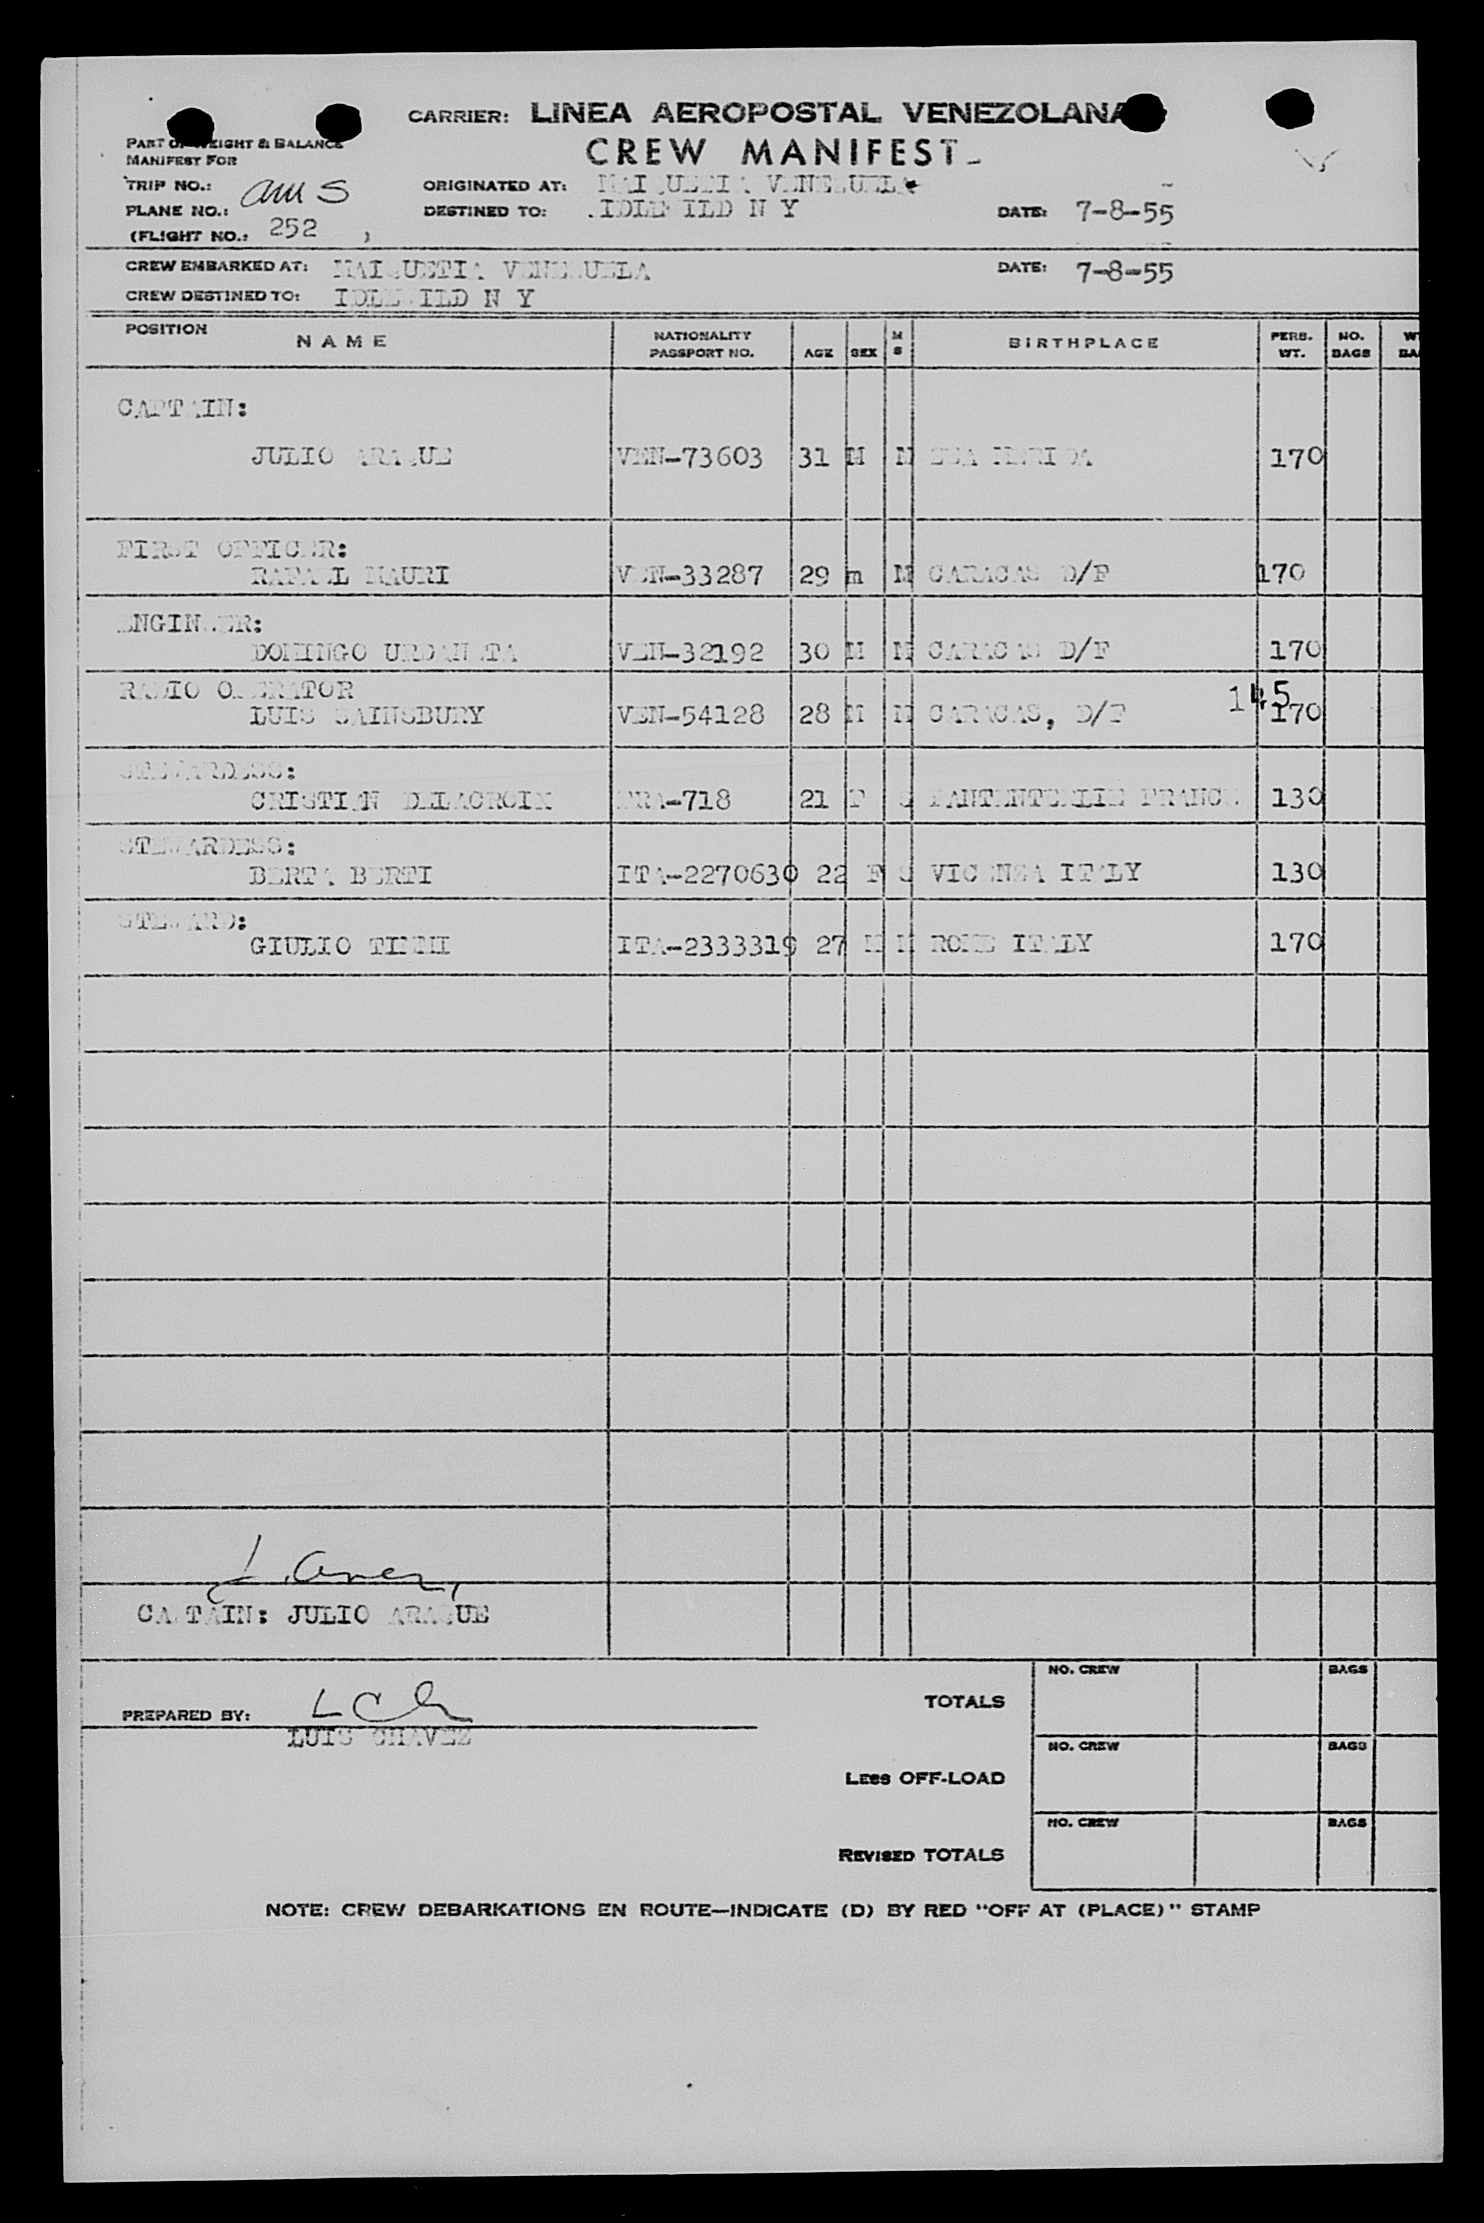 CARRIER: LINEA AEROPOSTAL VENEZOLANA
PART OF WEIGHT & BALANCE
MANIFEST FOR
CREW MANIFEST
TRIP NO.:
ORIGINATED AT: MAIQUETIA VENEZUELA
PLANE NO.: AMS
DESTINED TO: IDLEWILD N Y
DATE: 7-8-55
(FLIGHT NO.: 252 )
CREW EMBARKED AT: MAIQUETIA VENEZUELA
DATE: 7-8-55
CREW DESTINED TO: IDLEWILD N Y
POSITION NAME NATIONALITY PASSPORT NO. AGE SEX M S BIRTHPLACE PERS. WT. NO. BAGS
CAPTAIN:
JULIO ARAQUE VEN-73603 31 M M ZEA MERIDA 170
FIRST OFFICER:
RAFAEL MAURI VEN-33287 29 m M CARACAS D/F 170
ENGINEER:
DOMINGO URDANETA VEN-32192 30 M M CARACAS D/F 170
RADIO OPERATOR
LUIS SAINSBURY VEN-54128 28 M M CARACAS, D/F 145 170
STEWARDESS:
CRISTIAN DELACROIX FRA-718 21 F S FRANCE 130
STEWARDESS:
BERTA BERTI ITA-2270630 22 F S VICENZA ITALY 130
STEWARD:
GIULIO ITA-2333319 27 M M ROME ITALY 170
CAPTAIN: JULIO ARAQUE
PREPARED BY:
LUIS CHAVEZ
TOTALS NO. CREW BAGS
LESS OFF-LOAD NO. CREW BAGS
REVISED TOTALS NO. CREW BAGS
NOTE: CREW DEBARKATIONS EN ROUTE—INDICATE (D) BY RED "OFF AT (PLACE)" STAMP